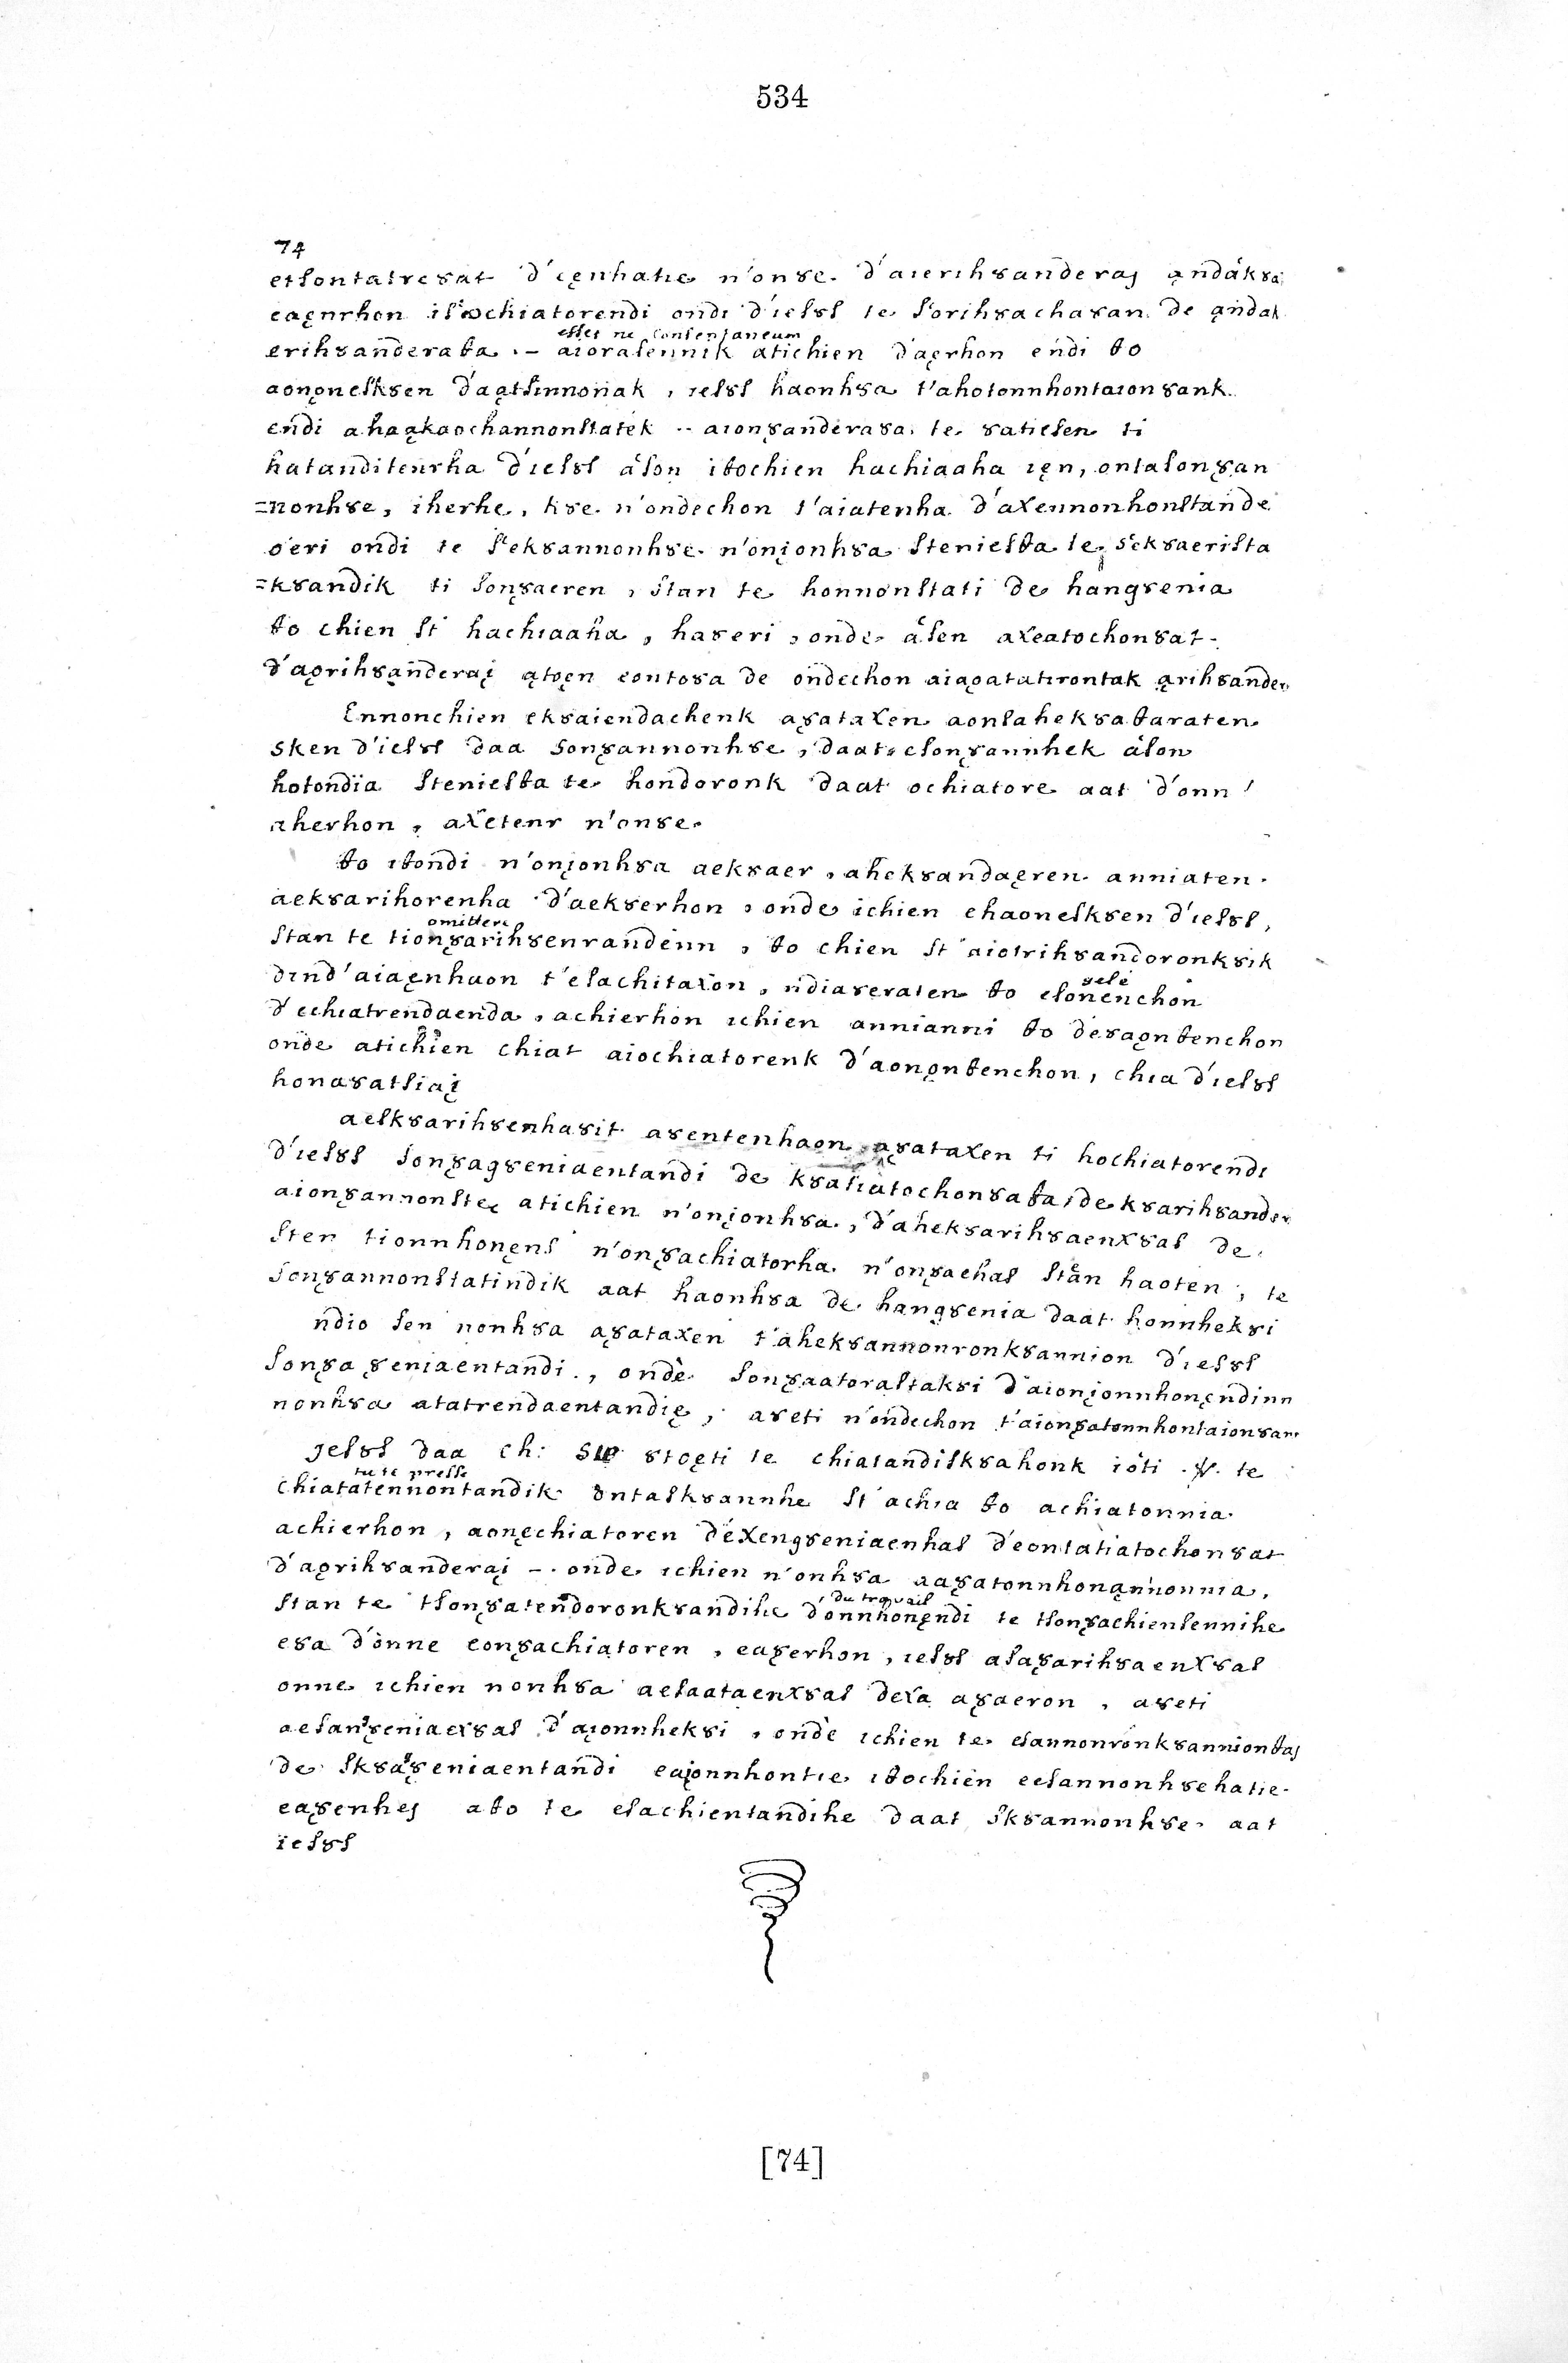 534
74
etsontatresat d'ięnhatie n'onȣe. d'aierihȣanderaj ąndakȣa
eaęnrhon ishochiatorendi ondi d'iesȣs te sorihȣachaȣan. de ąndak
esset ne consentaneum
erihȣanderaŧa .- aiorasennik atichien d'aęrhon endi ŧo
aonǫneskȣen d'aątsinnonak, iesȣs haonhȣa t'ahotonnhontaionȣank.
endi ahaąkaochannonstatek .. aionȣanderaȣa. te ȣatiesen ti
hatanditenrha d'iesȣs áson iŧochien hachiaaha ięn, ontasonȣan
=nonhȣe, iherhe, kȣe. n'ondechon t'aiatenha d'aχennonhonstande
oeri ondi te sekȣannonhȣe. n'onįonhȣa steniesŧa te sekȣaerista
=kȣandik ti sonȣaeren, stan te honnonstati de hangȣenia
ŧo chien st hachiaaha, haȣeri, onde ásen aχeatochonȣat.
d'aǫrihȣanderaį ątoęn eontoȣa de ondechon aiaǫatatirontak ąrihȣander
Ennonchien ekȣaiendachenk aȣataχen aonsahekȣaŧaraten
sken d'iesȣs daa sonȣannonhȣe, daat esonȣannhek áson
hotondia steniesŧa te hondoronk daat ochiatore aat d'onn
aherhon, aχetenr n'onȣe.
ŧo iŧondi n'onįonhȣa aekȣaer, ahekȣandaęren. anniaten.
aekȣarihorenha d'aekȣerhon, onde ichien ehaoneskȣen d'iesȣs,
omittere
stan te tionȣarihȣenrandenn, ŧo chien st aiotrihȣandoronkȣik
dind'aiaęnhaon t'esachitaχon, ndiaȣeraten ŧo esonenchon
gelé
d'echiatrendaenda, achierhon ichien annianni ŧo deȣaǫnŧenchon
onde atichien chiat aiochiatorenk d'aonǫnŧenchon, chia d'iesȣs
honaȣatsiaį
aeskȣarihȣenhaȣit aȣentenhaon aȣataχen ti hochiatorendi
d'iesȣs sonȣagȣeniaentandi de kȣatiatochonȣaŧa, de kȣarihȣander
aionȣannonste atichien n'onįonhȣa, d'ahekȣarihȣaenχȣas de
sten tionnhonęns n'onȣachiatorha. n'onȣaehas stan haoten, te
sonȣannonstatindik aat haonhȣa de hangȣenia daat honnhekȣi
ndio sen nonhȣa aȣataχen t'ahekȣannonronkȣannion d'iesȣs
sonȣaȣeniaentandi., onde sonȣaatorastakȣi d'aionįonnhonęndinn
nonhȣa atatrendaentandię, aȣeti n'ondechon t'aionȣatonnhontaionȣan
Jesȣs daa ch: ȣtoęti te chiatandiskȣahonk ioti .N. te
tu te presse
chiatatennontandik ontaskȣannhe st achia ŧo achiatonnia.
achierhon, aonęchiatoren deχengȣeniaenhas d'eontatiatochonȣat
d'aǫrihȣanderaį -. onde ichien n'onhȣa aaȣatonnhonąnnonnia,
du travail
stan te tsonȣatendoronkȣandihe d'onnhonęndi te tsonȣachiensennihe
eȣa d'onne eonȣachiatoren, eaȣerhon, iesȣs asaȣarihȣaenχȣas
onne ichien nonhȣa aesaataenχȣas deχa aȣaeron, aȣeti
aesanȣeniaeχȣas d'aįonnhekȣi, onde ichien te esannonronkȣannionŧaj
de skȣaȣeniaentandi eaįonnhontie iŧochien eesannonhȣehatie.
eaȣenhej aŧo te esachientandihe daat skȣannonhȣe. aat
iesȣs
[74]